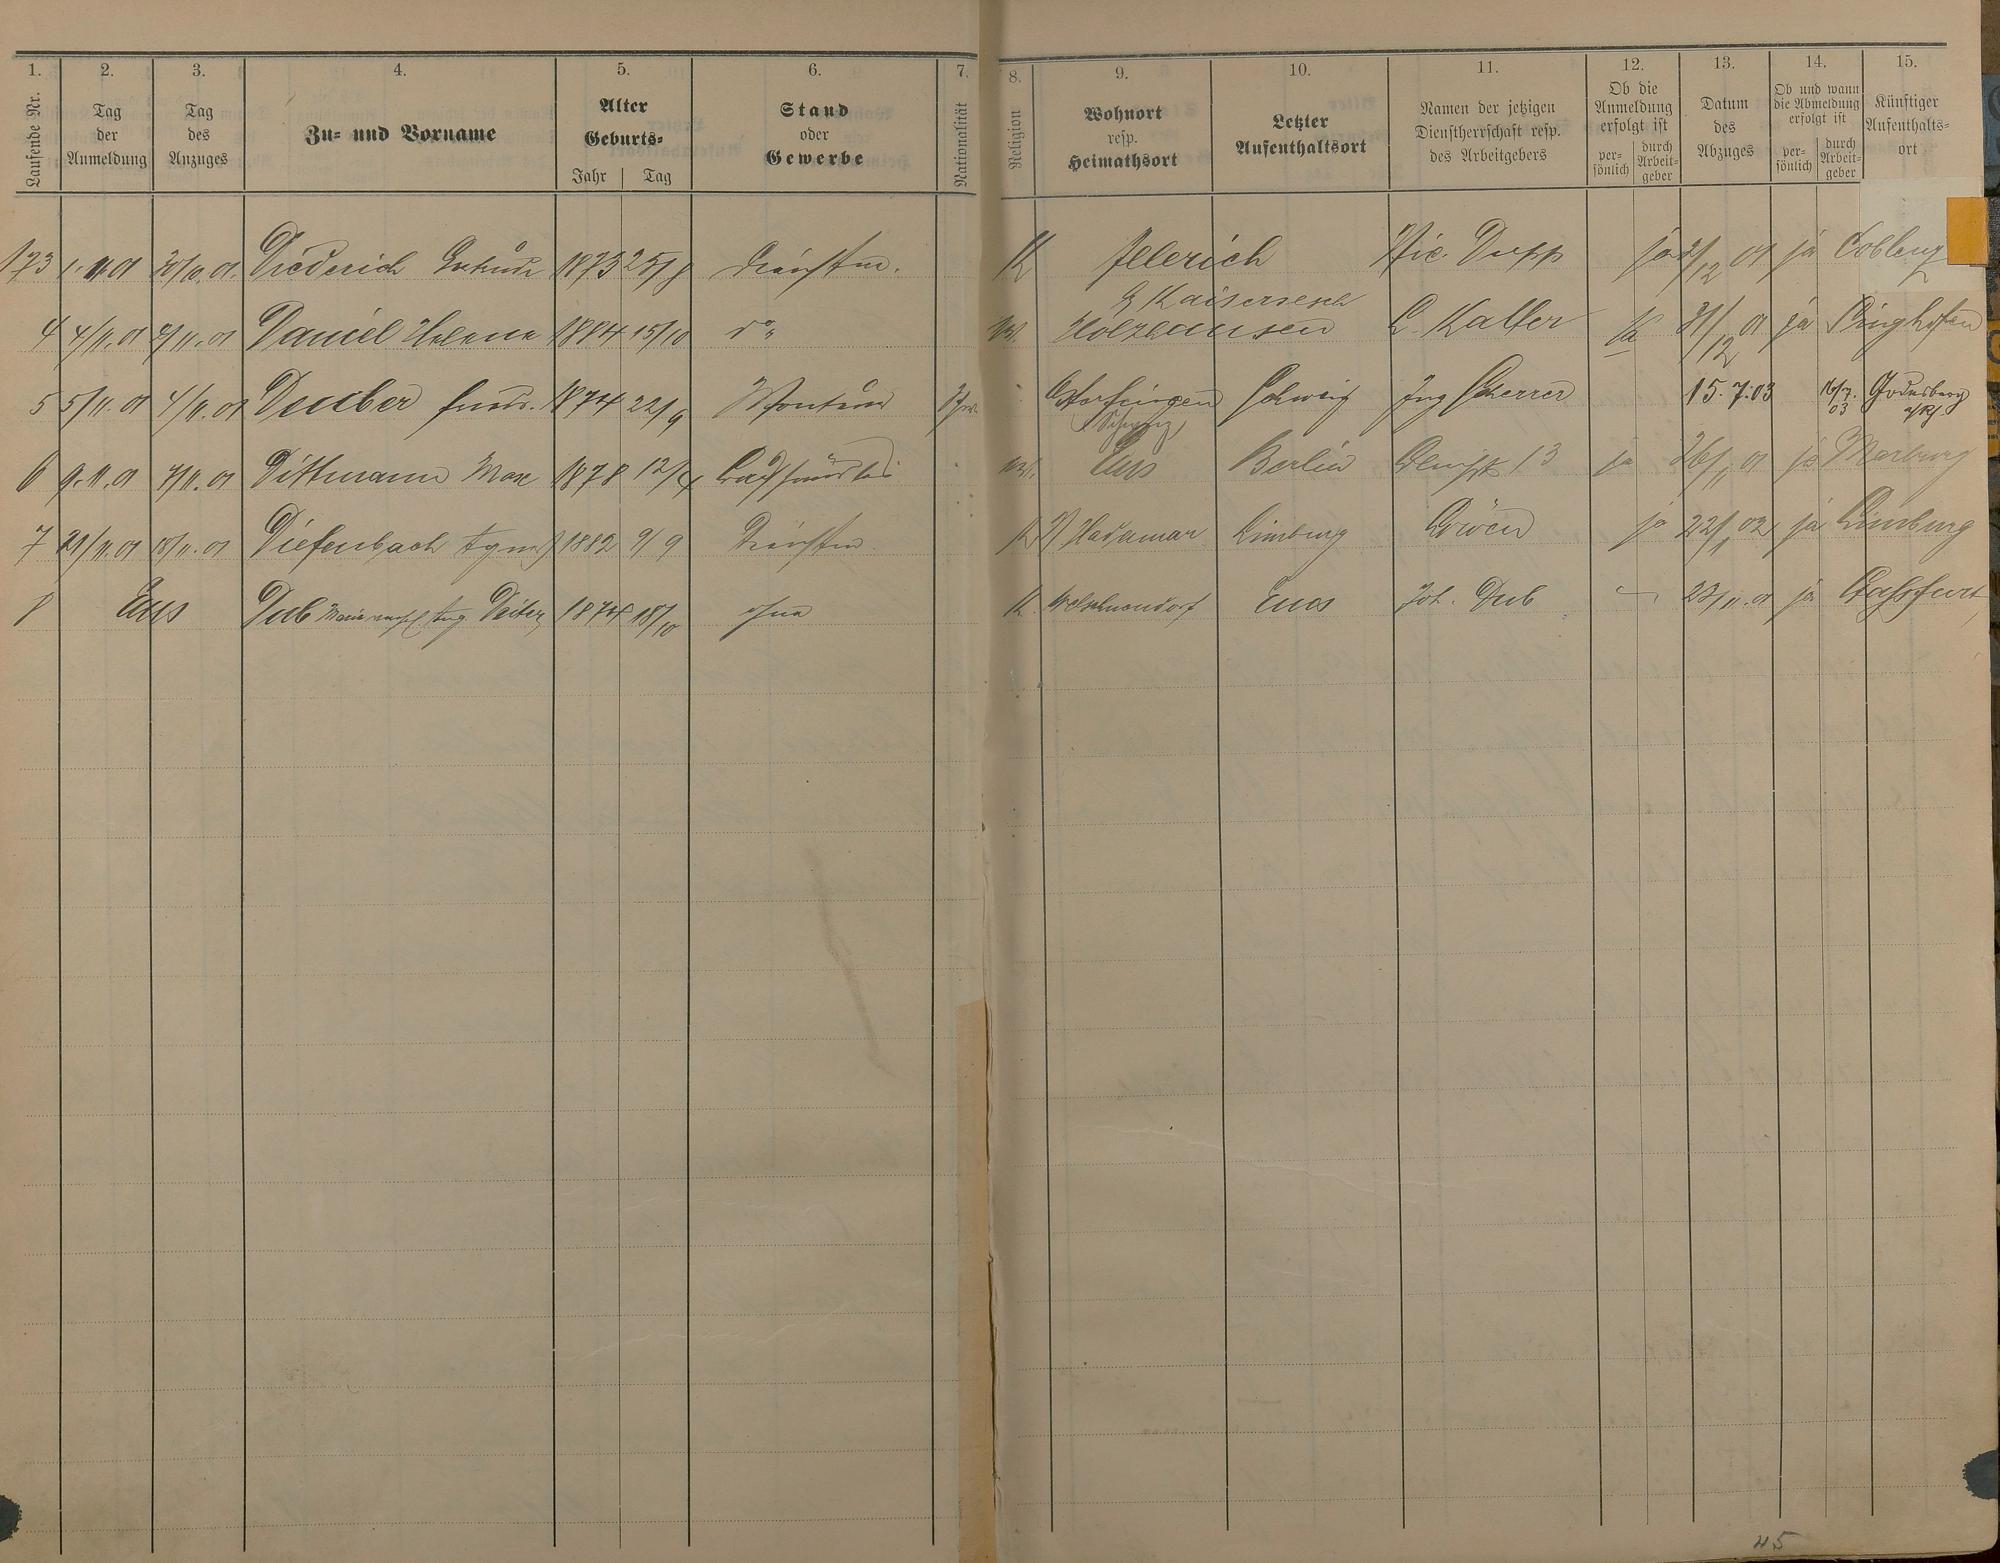 1. 2. 3. 4. 5. 6. 7. 8. 9. 10. 11. 12. 13. 14. 15.
Laufende Nr.
Tag der Anmeldung
Tag des Anzuges
Zu- und Vorname
Alter
Geburts-
Jahr Tag
Stand oder Gewerbe
Nationalität
Religion
Wohnort resp. Heimathsort
Letzter Aufenthaltsort
Namen der jetzigen Dienstherrschaft resp. des Arbeitgebers
Ob die Anmeldung erfolgt ist
per-sönlich durch Arbeit-geber
Datum des Abzuges
Ob und wann die Abmeldung erfolgt ist
per-sönlich durch Arbeit-geber
Künftiger Aufenthalts-ort
123 1.11.01 30/10.01. Diederich Gertrude 1873 25/8 K Illerich Nic. Dupp ja 2/12 01 ja Coblenz
b Kaisersesch
4 4/11.01 2/11.01 Daniel Helene 1884 15/10 do Holzhausen L. Kalter ja 31/12 01 ja Singhofen
5 5/11.01 4/11.01 Deuber 1874 22/9 Monteur Schweiz Ing Scherrer 15.7.03 16/7.03 Godesberg a/Rh.
(Schweiz)
6 9.11.01 7/11.01 Dittmann Max 1878 12/4 Ems Berlin 13 ja 26/11 01 ja Marburg
7 21/11.01 18/11.01 Diefenbach Agnes 1882 9/9 K Hadamar Limburg ja 22/1 02 ja Limburg
8 Ems Dub 1874 18/10 ohne K. Welschneudorf Ems Joh. Dub — 23/11.01 ja
45